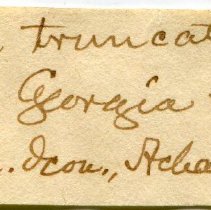 truncat
Georgia
. Icon., Acha